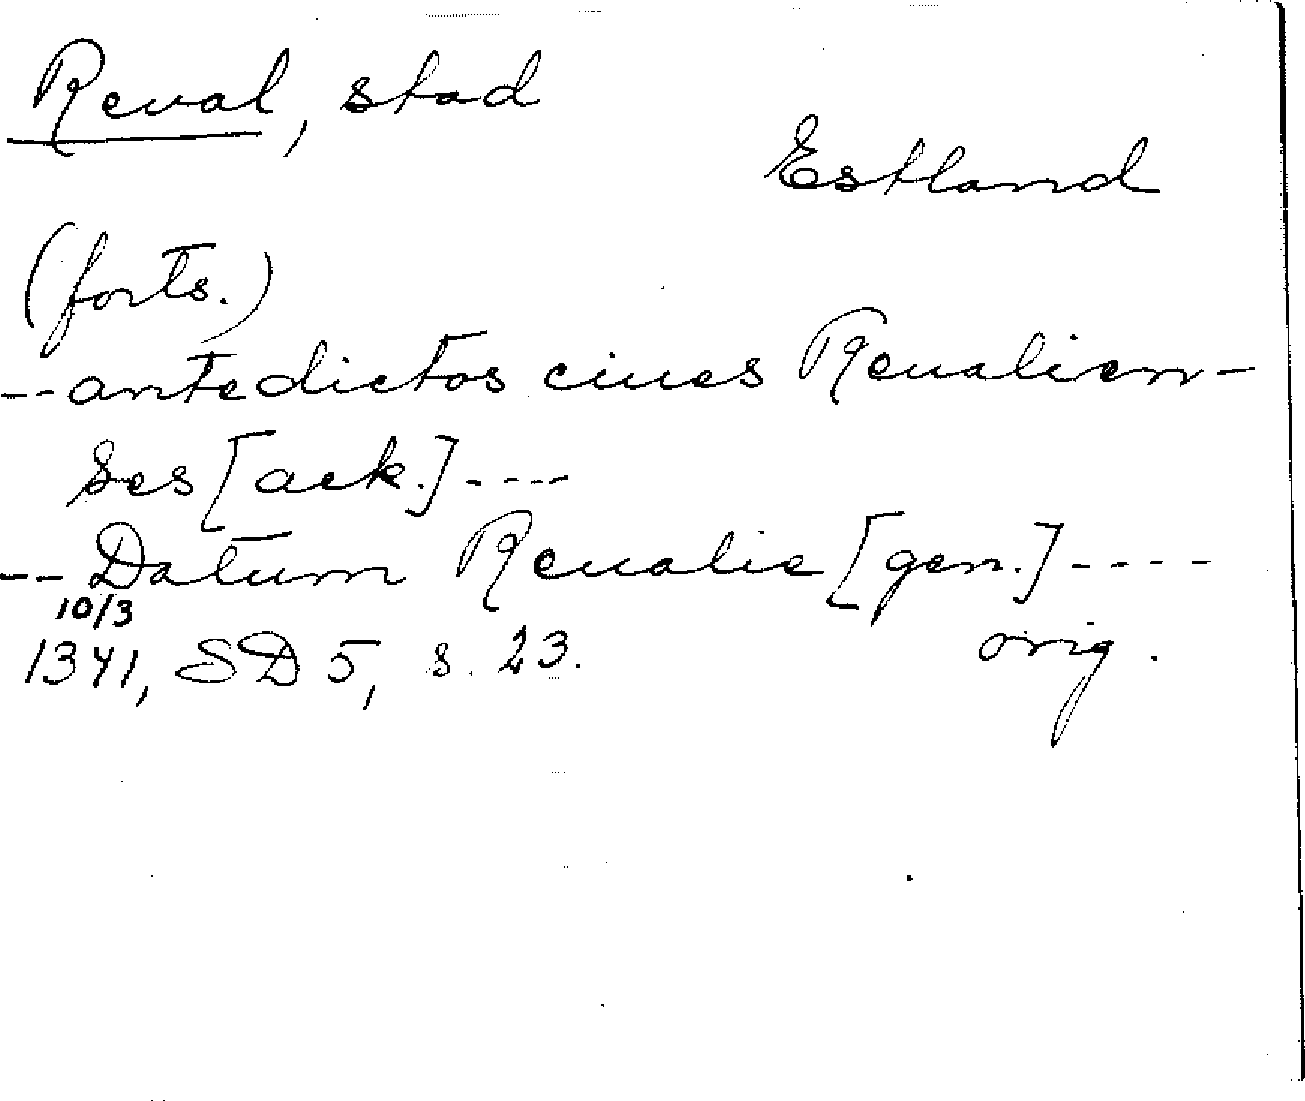 Reval, stad
Estland
(forts.)
-- antedictos ciues Reualien-
ses [ack.] ----
-- Datum Reualie [gen.] ----
10/3
1341, SD 5, s. 23.
orig.